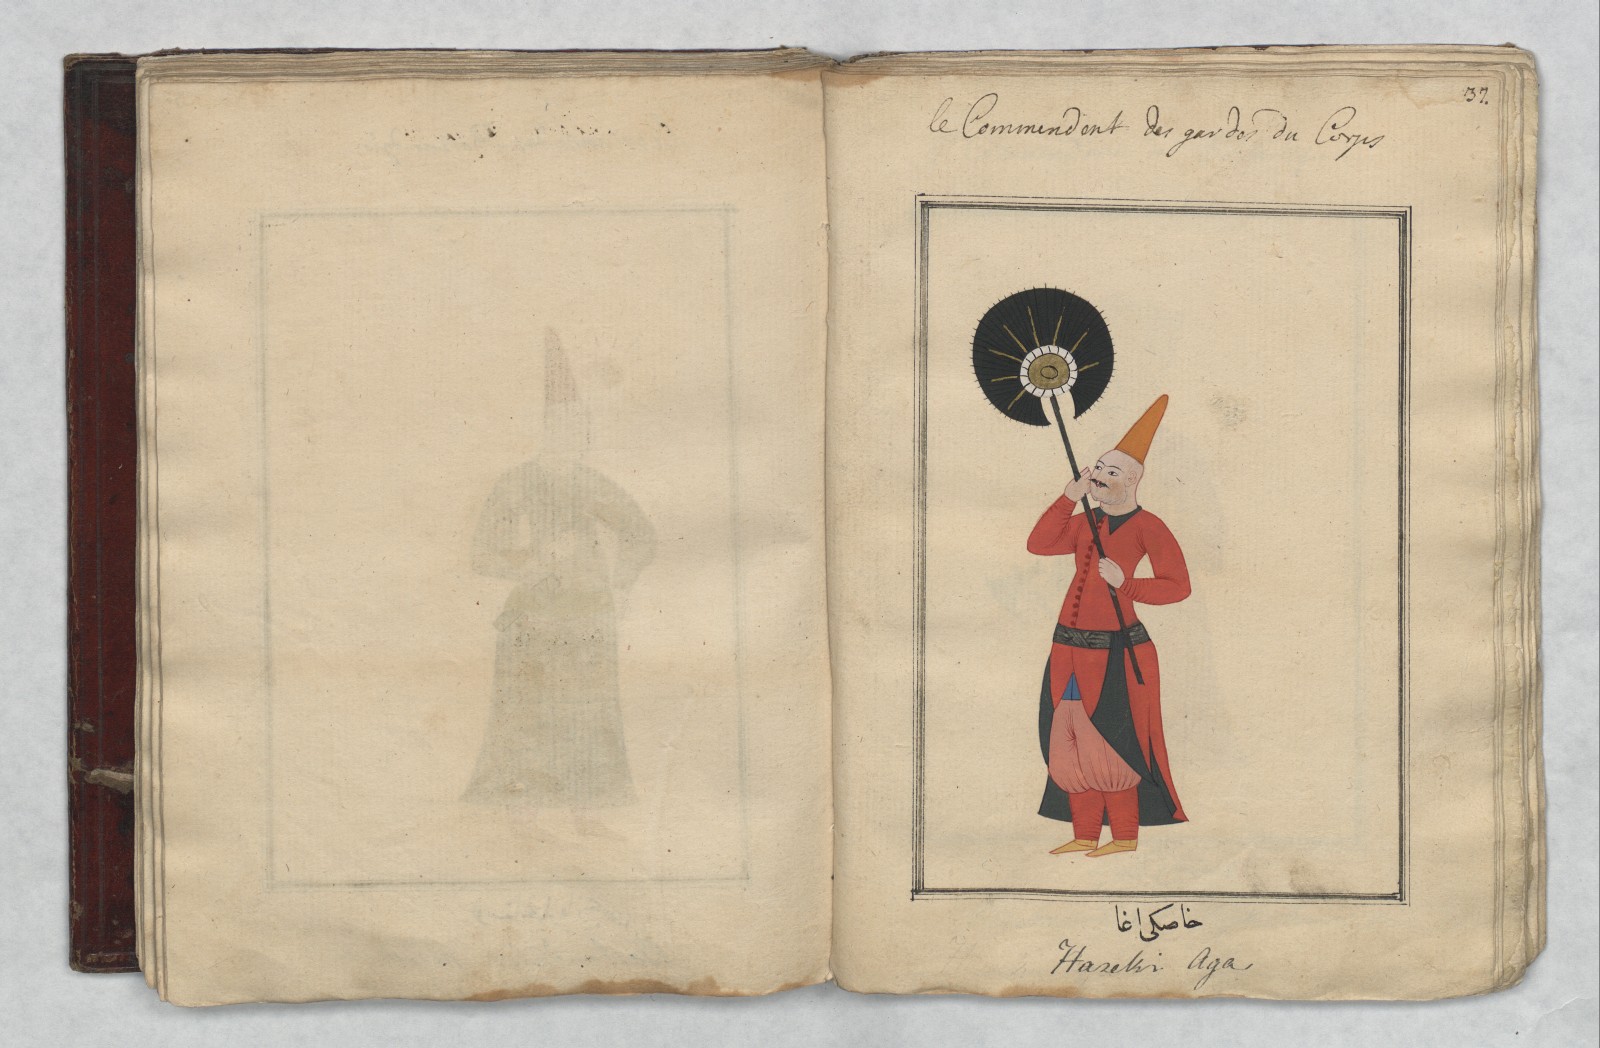 37.
le Commendent des gardes du Corps
خاصكی اغا
Haseki Aga